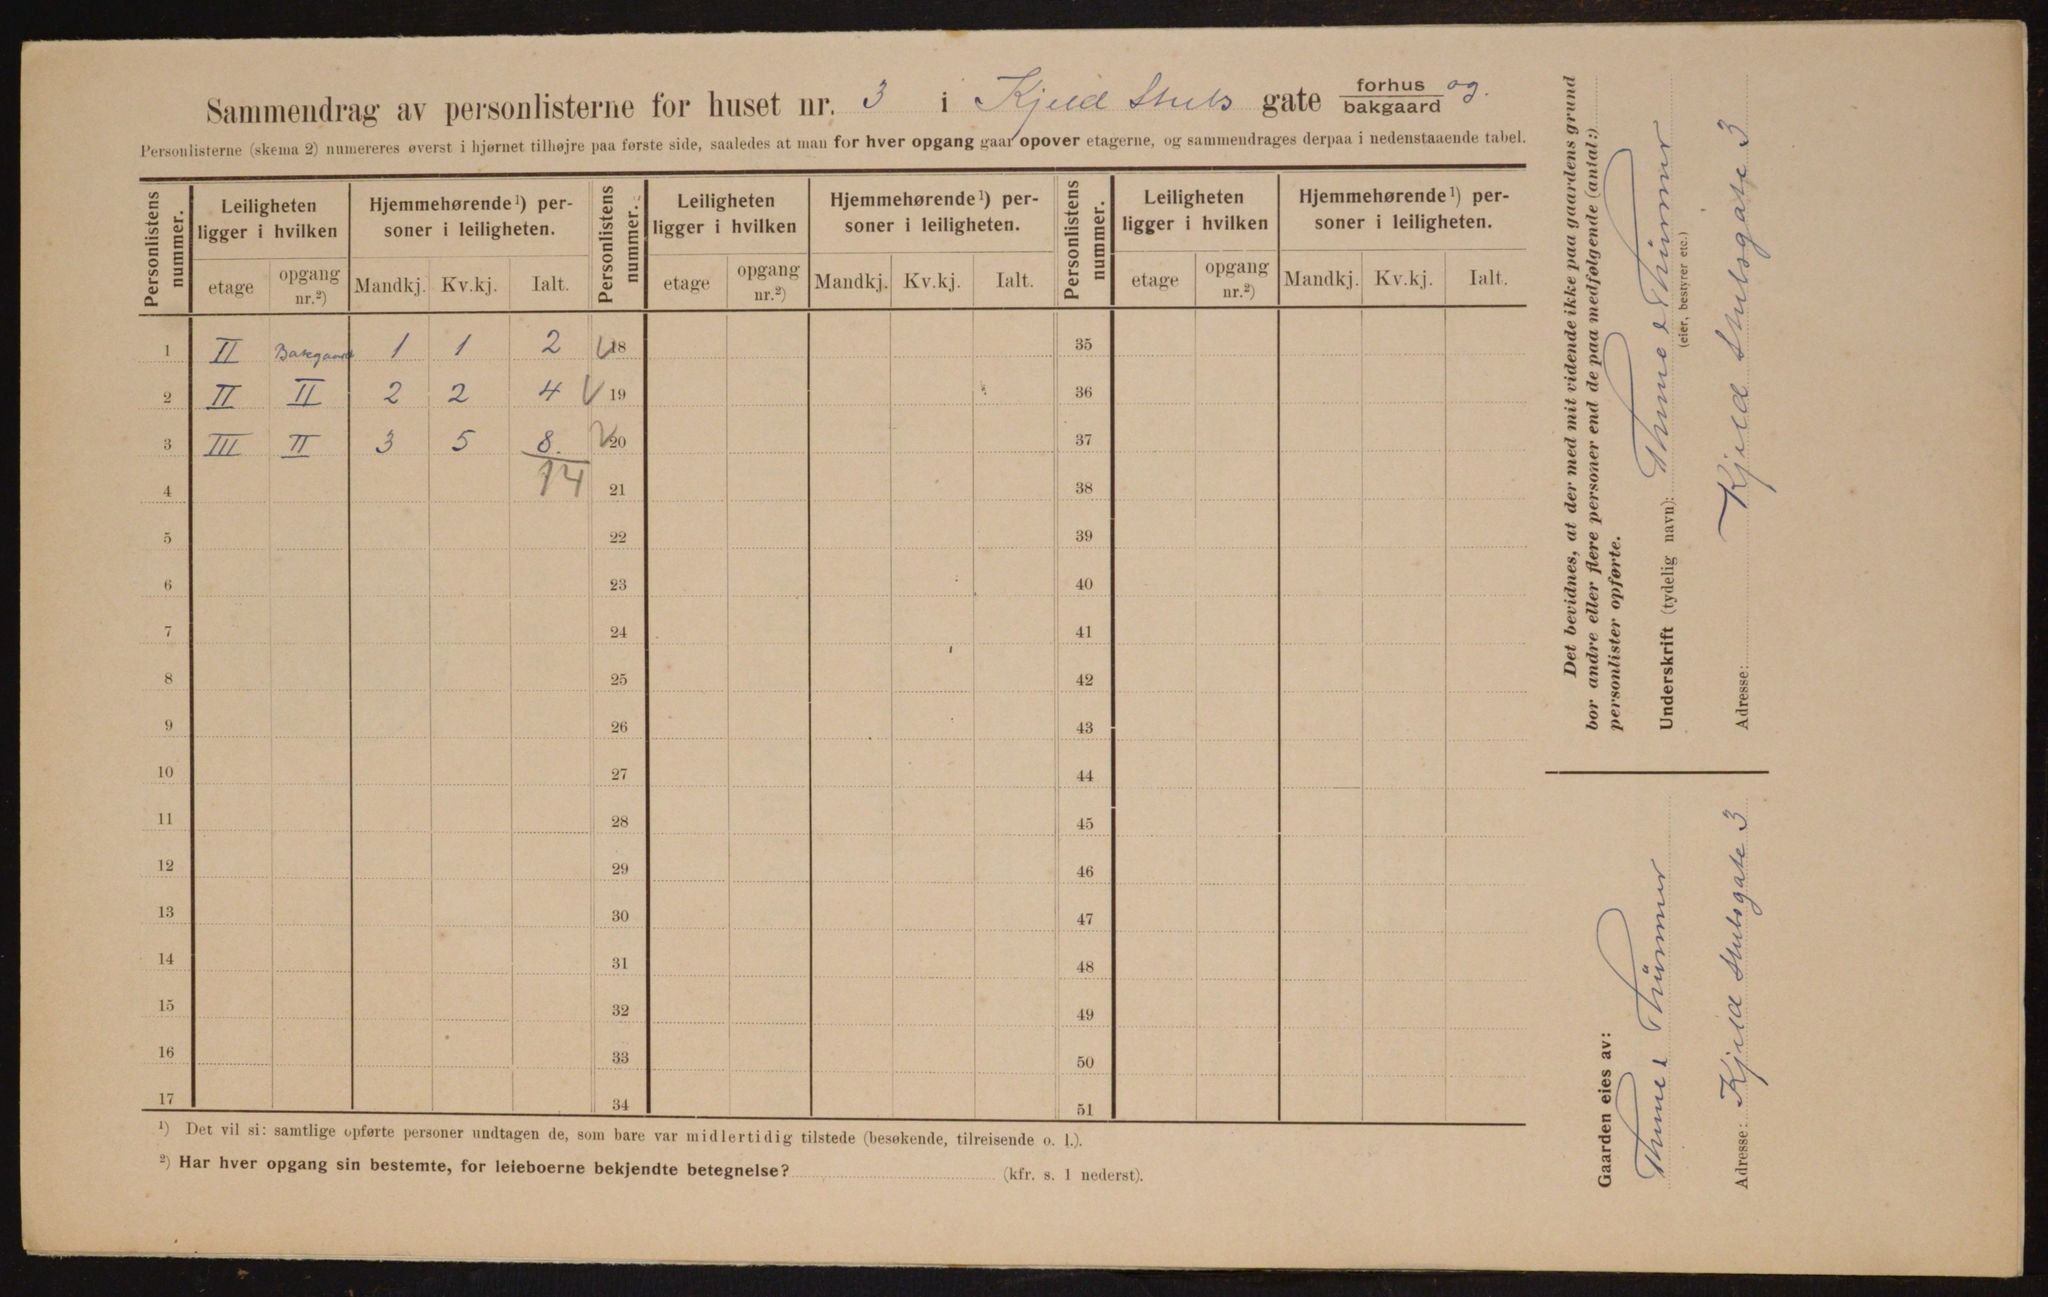 Sammendrag av personlisterne for huset nr. 3 i Kjeld Stubs gate forhus og bakgaard
Personlisterne (skema 2) numereres øverst i hjørnet tilhøjre paa første side, saaledes at man for hver opgang gaar opover etagerne, og sammendrages derpaa i nedenstaaende tabel.
Personlistens nummer. Leiligheten ligger i hvilken Hjemmehørende¹) personer i leiligheten. Personlistens nummer. Leiligheten ligger i hvilken Hjemmehørende¹) personer i leiligheten. Personlistens nummer. Leiligheten ligger i hvilken Hjemmehørende¹) personer i leiligheten.
etage opgang nr.²) Mandkj. Kv.kj. Ialt. etage opgang nr.²) Mandkj. Kv.kj. Ialt. etage opgang nr.²) Mandkj. Kv.kj. Ialt.
1 II Bakgaard 1 1 2 18 35
2 II II 2 2 4 19 36
3 III II 3 5 8. 20 37
4 14 21 38
5 22 39
6 23 40
7 24 41
8 25 42
9 26 43
10 27 44
11 28 45
12 29 46
13 30 47
14 31 48
15 32 49
16 33 50
17 34 51
¹) Det vil si: samtlige opførte personer undtagen de, som bare var midlertidig tilstede (besøkende, tilreisende o. l.).
²) Har hver opgang sin bestemte, for leieboerne bekjendte betegnelse? (kfr. s. 1 nederst).
Det bevidnes, at der med mit vidende ikke paa gaardens grund
bor andre eller flere personer end de paa medfølgende (antal:)
personlister opførte.
Underskrift (tydelig navn): Thune & Thürmer
(eier, bestyrer etc.)
Adresse: Kjeld Stubsgate 3
Gaarden eies av:
Thune & Thürmer
Adresse: Kjeld Stubsgate 3